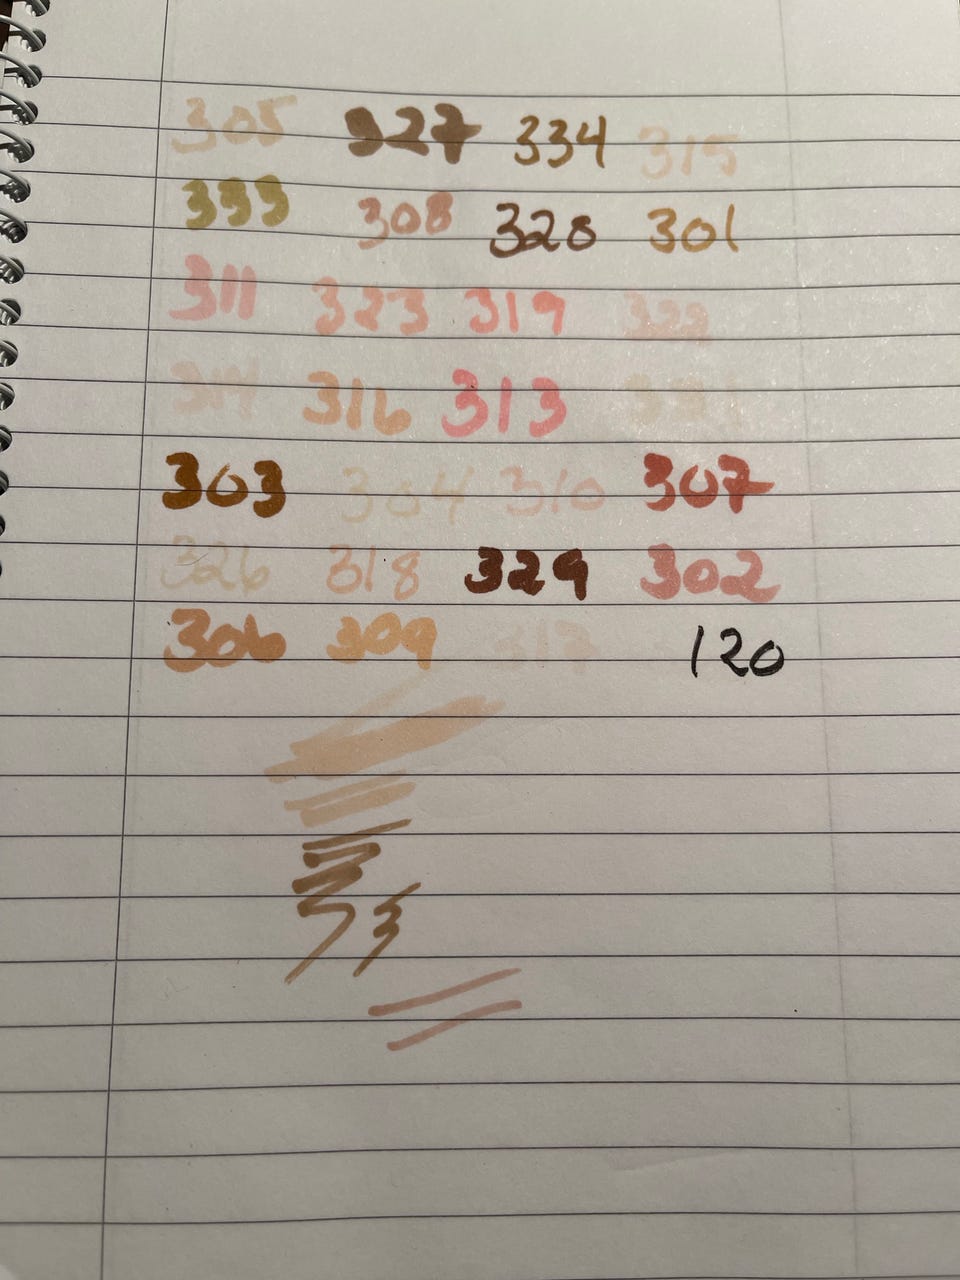 305 327 334 315
333 308 328 301
311 323 319 322
314 316 313 331
303 304 310 307
326 318 329 302
306 309 317 120